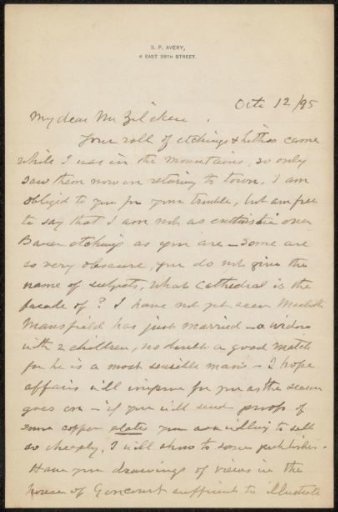 S. P. AVERY,
4 EAST 38TH STREET.
Oct. 12/95
My dear Mr Zilcken.
Your roll of etchings & lithos came
while I was in the mountains, so only
saw them now on return to town, I am
obliged to you for your trouble, but am free
to say that I am not as enthusiastic over
Bauer etchings as you are — some are
so very obscure, you do not give the
name of subjects, What Cathedral is the
facade of? I have not yet seen
Mansfield has just married — a widow
with 2 children, no doubt a good match
for he is a most sensible man — I hope
affairs will improve for you as the season
goes on — if you will send proofs of
some copper plates you are willing to sell
so cheaply, I will show to some publisher.
Have you drawings of views in the
house of Goncourt sufficient to illustrate